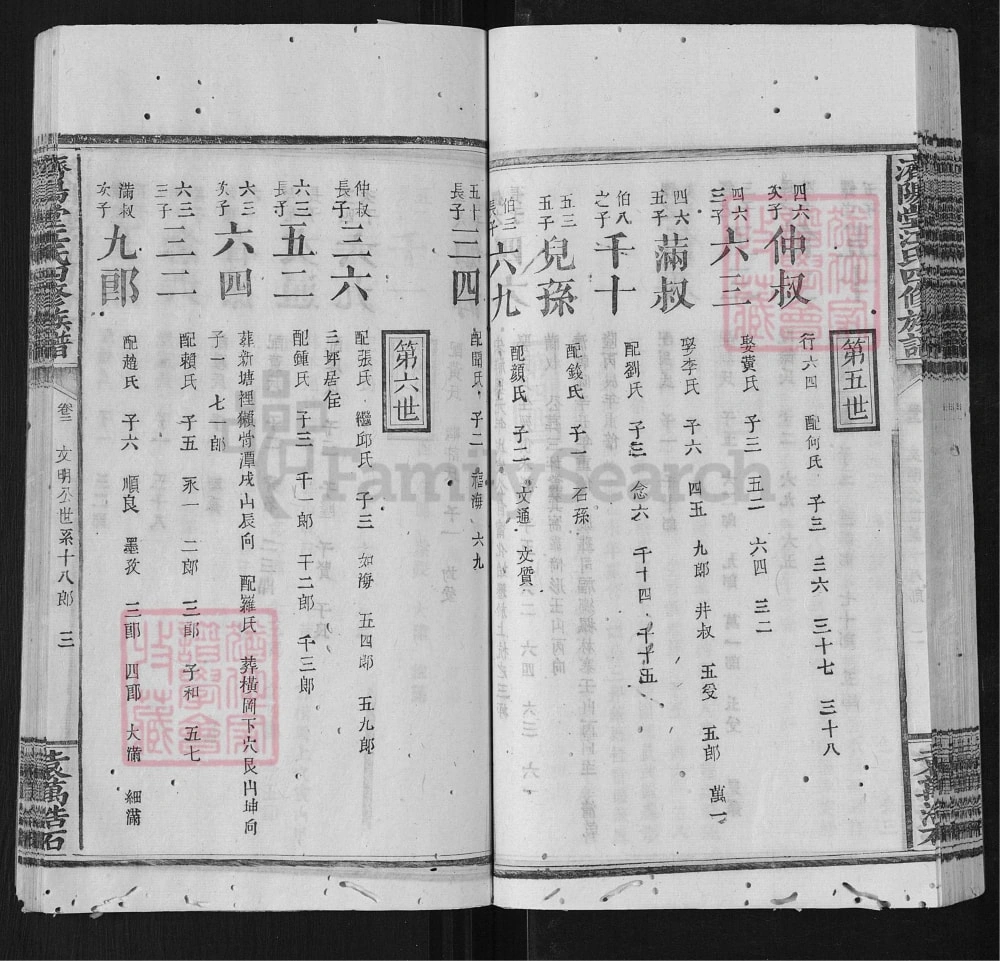 第五世
四六次子 仲叔 行六四 配何氏 子三 三六 三十七 三十八
四六三子 六三 娶黃氏 子三 五二 六四 三二
四六五子 滿叔 娶李氏 子六 四五 九郎 井叔 五受 五郎 萬一
伯八之子 千十 配劉氏 子三 念六 千十四 千十五
五三五子 兒孫 配錢氏 子一 石孫
伯三長子 六九 配顏氏 子二 文通 文質
五十長子 三四 配聞氏 子二 福海 六九
第六世
仲叔長子 三六 配張氏 繼邱氏 子三 如海 五四郎 五九郎
三坪居住
六三長子 五二 配鍾氏 子三 千一郎 千二郎 千三郎
六三次子 六四 葬新塘裡獺骨潭戌山辰向 配羅氏 葬橫岡下穴艮山坤向
子一 七一郎
六三三子 三二 配賴氏 子五 永一 二郎 三郎 子和 五七
滿叔次子 九郎 配趙氏 子六 順良 墨孜 三郎 四郎 大滿 細滿
濟陽堂江氏四修族譜
卷二 文明公世系十八郎 三
FamilySearch